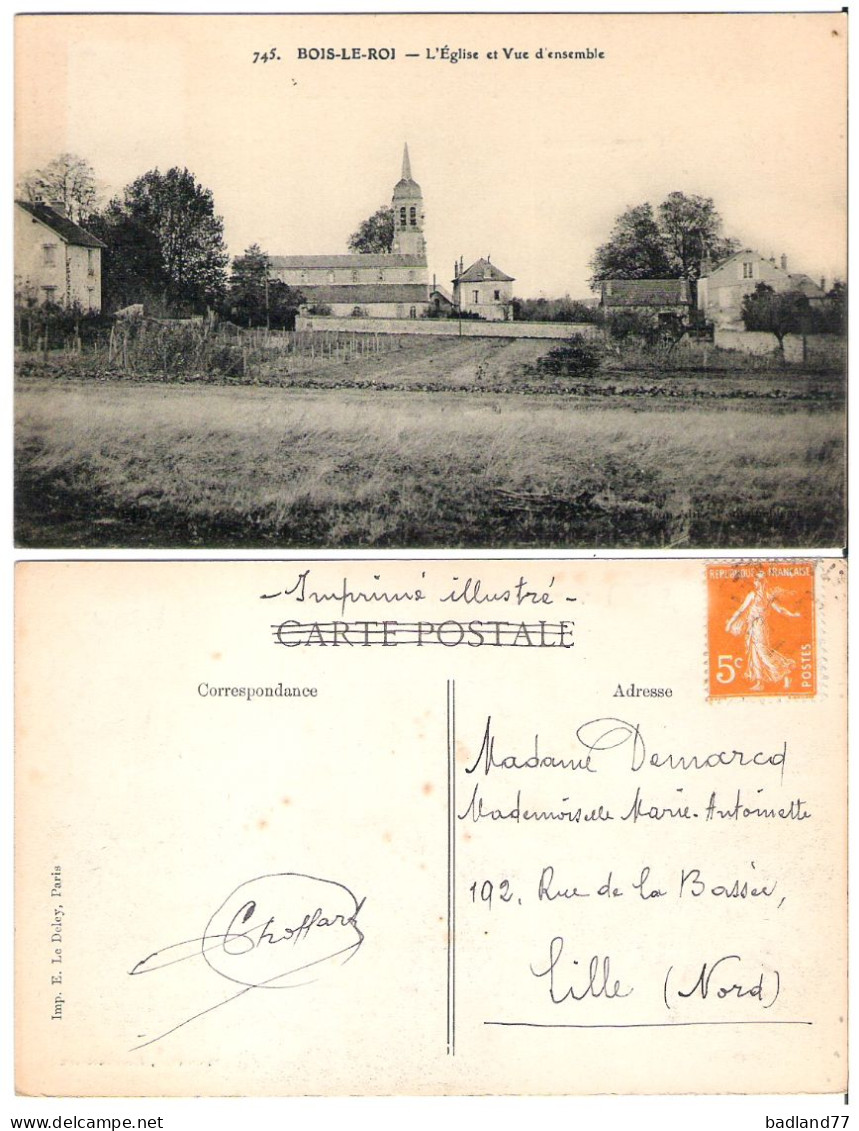 745. BOIS-LE-ROI — L'Église et Vue d'ensemble
- Imprimé illustré -
CARTE POSTALE
REPUBLIQUE FRANÇAISE
5c
POSTES
Correspondance
Adresse
Madame Demarcq
Mademoiselle Marie-Antoinette
192, Rue de la Bassée,
Lille (Nord)
Choffard
Imp. E. Le Deley, Paris
badland77